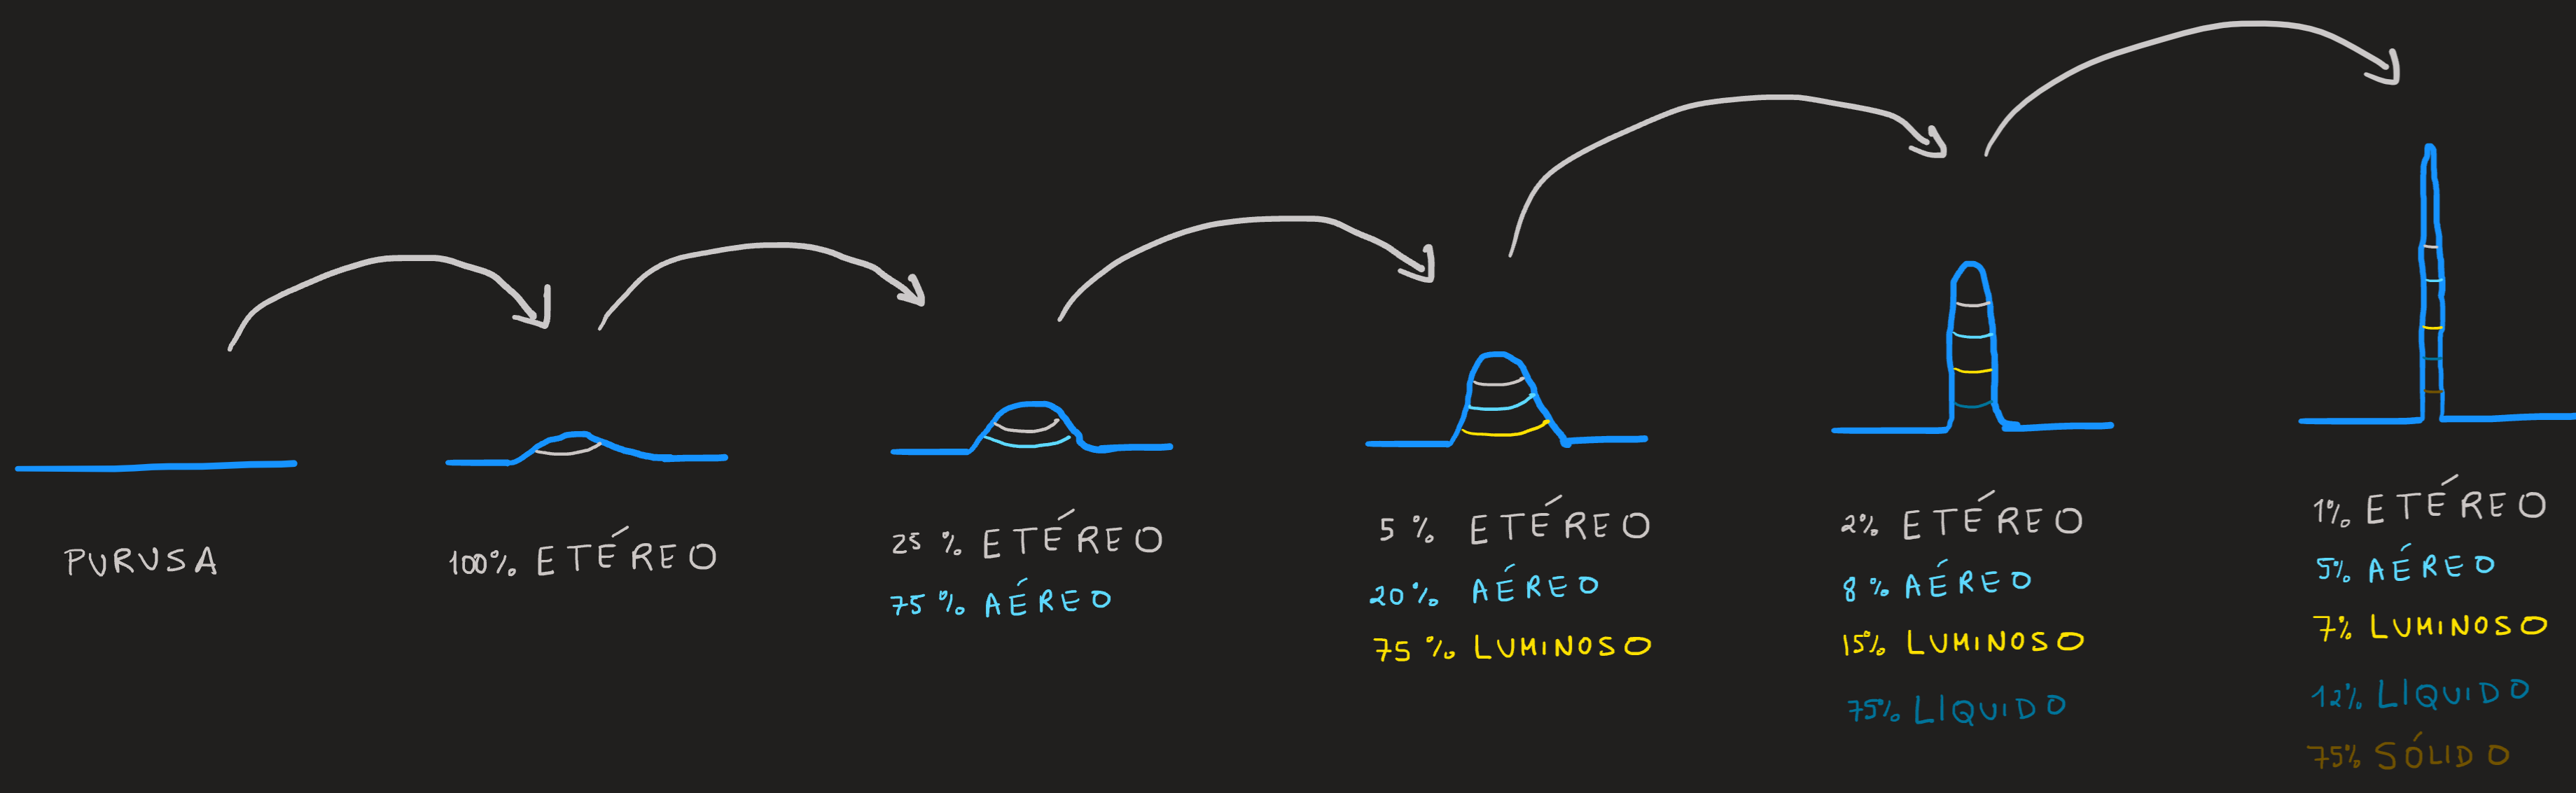 PURUSA
100% ETÉREO
25% ETÉREO
75% AÉREO
5% ETÉREO
20% AÉREO
75% LUMINOSO
2% ETÉREO
8% AÉREO
15% LUMINOSO
75% LIQUIDO
1% ETÉREO
5% AÉREO
7% LUMINOSO
12% LIQUIDO
75% SÓLIDO